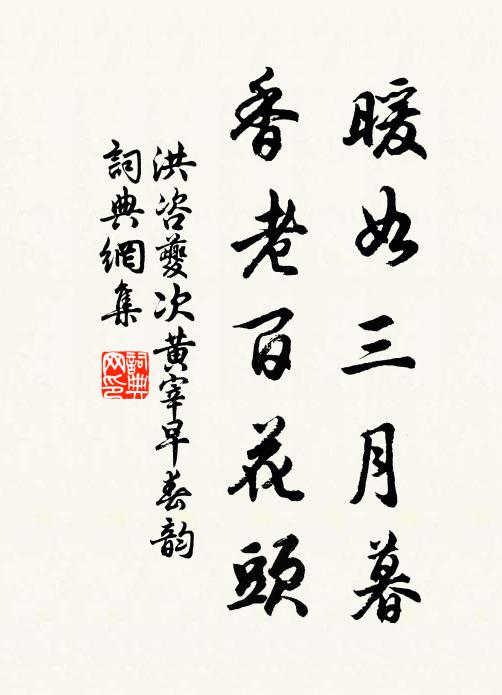 暖如三月暮
香老百花頭
洪咨夔次黄宰早春韵
詞典網集
詞典
网印